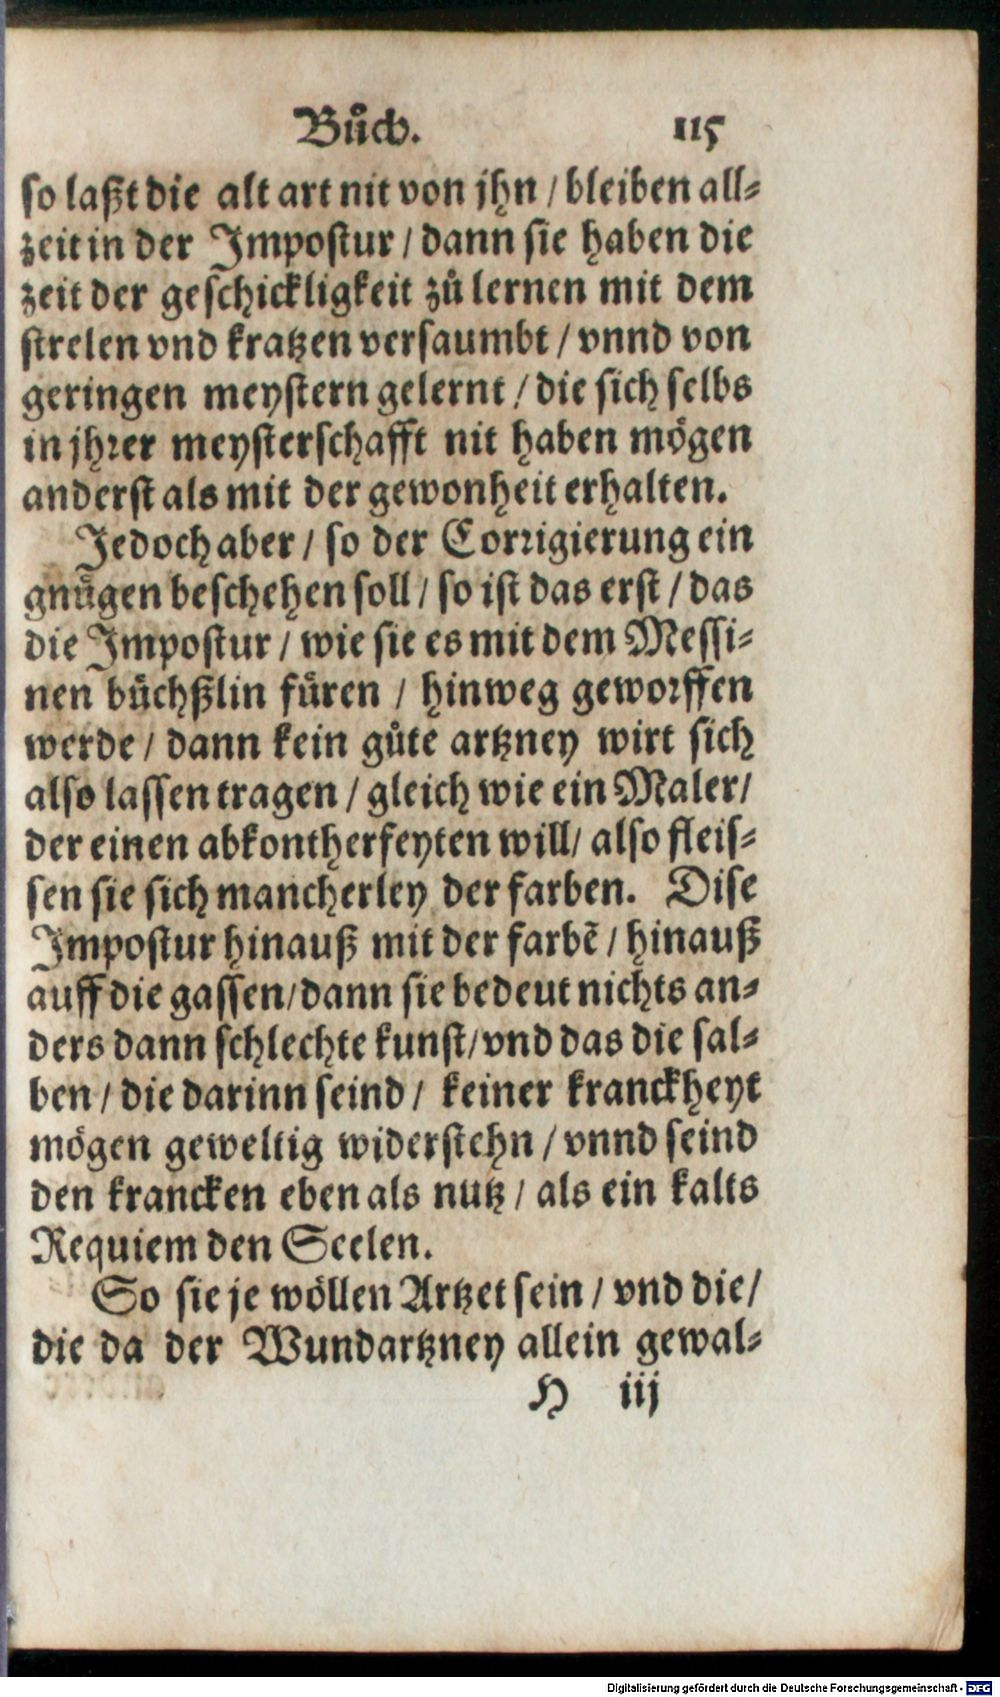 Buͦch. 115
so laßt die alt art nit von jhn / bleiben all⸗
zeit in der Impostur / dann sie haben die
zeit der geschickligkeit zuͦ lernen mit dem
strelen vnd kratzen versaumbt / vnnd von
geringen meystern gelernt / die sich selbs
in jhrer meysterschafft nit haben mögen
anderst als mit der gewonheit erhalten.
Jedoch aber / so der Corrigierung ein
gnuͤgen beschehen soll / so ist das erst / das
die Impostur / wie sie es mit dem Messi⸗
nen buͤchßlin fuͤren / hinweg geworffen
werde / dann kein guͦte artzney wirt sich
also lassen tragen / gleich wie ein Maler /
der einen abkontherfeyten will / also fleis⸗
sen sie sich mancherley der farben. Dise
Impostur hinauß mit der farbē / hinauß
auff die gassen / dann sie bedeut nichts an⸗
ders dann schlechte kunst / vnd das die sal⸗
ben / die darinn seind / keiner kranckheyt
mögen geweltig widerstehn / vnnd seind
den krancken eben als nutz / als ein kalts
Requiem den Seelen.
So sie je wöllen Artzet sein / vnd die /
die da der Wundartzney allein gewal⸗
H iij
Digitalisierung gefördert durch die Deutsche Forschungsgemeinschaft - DFG